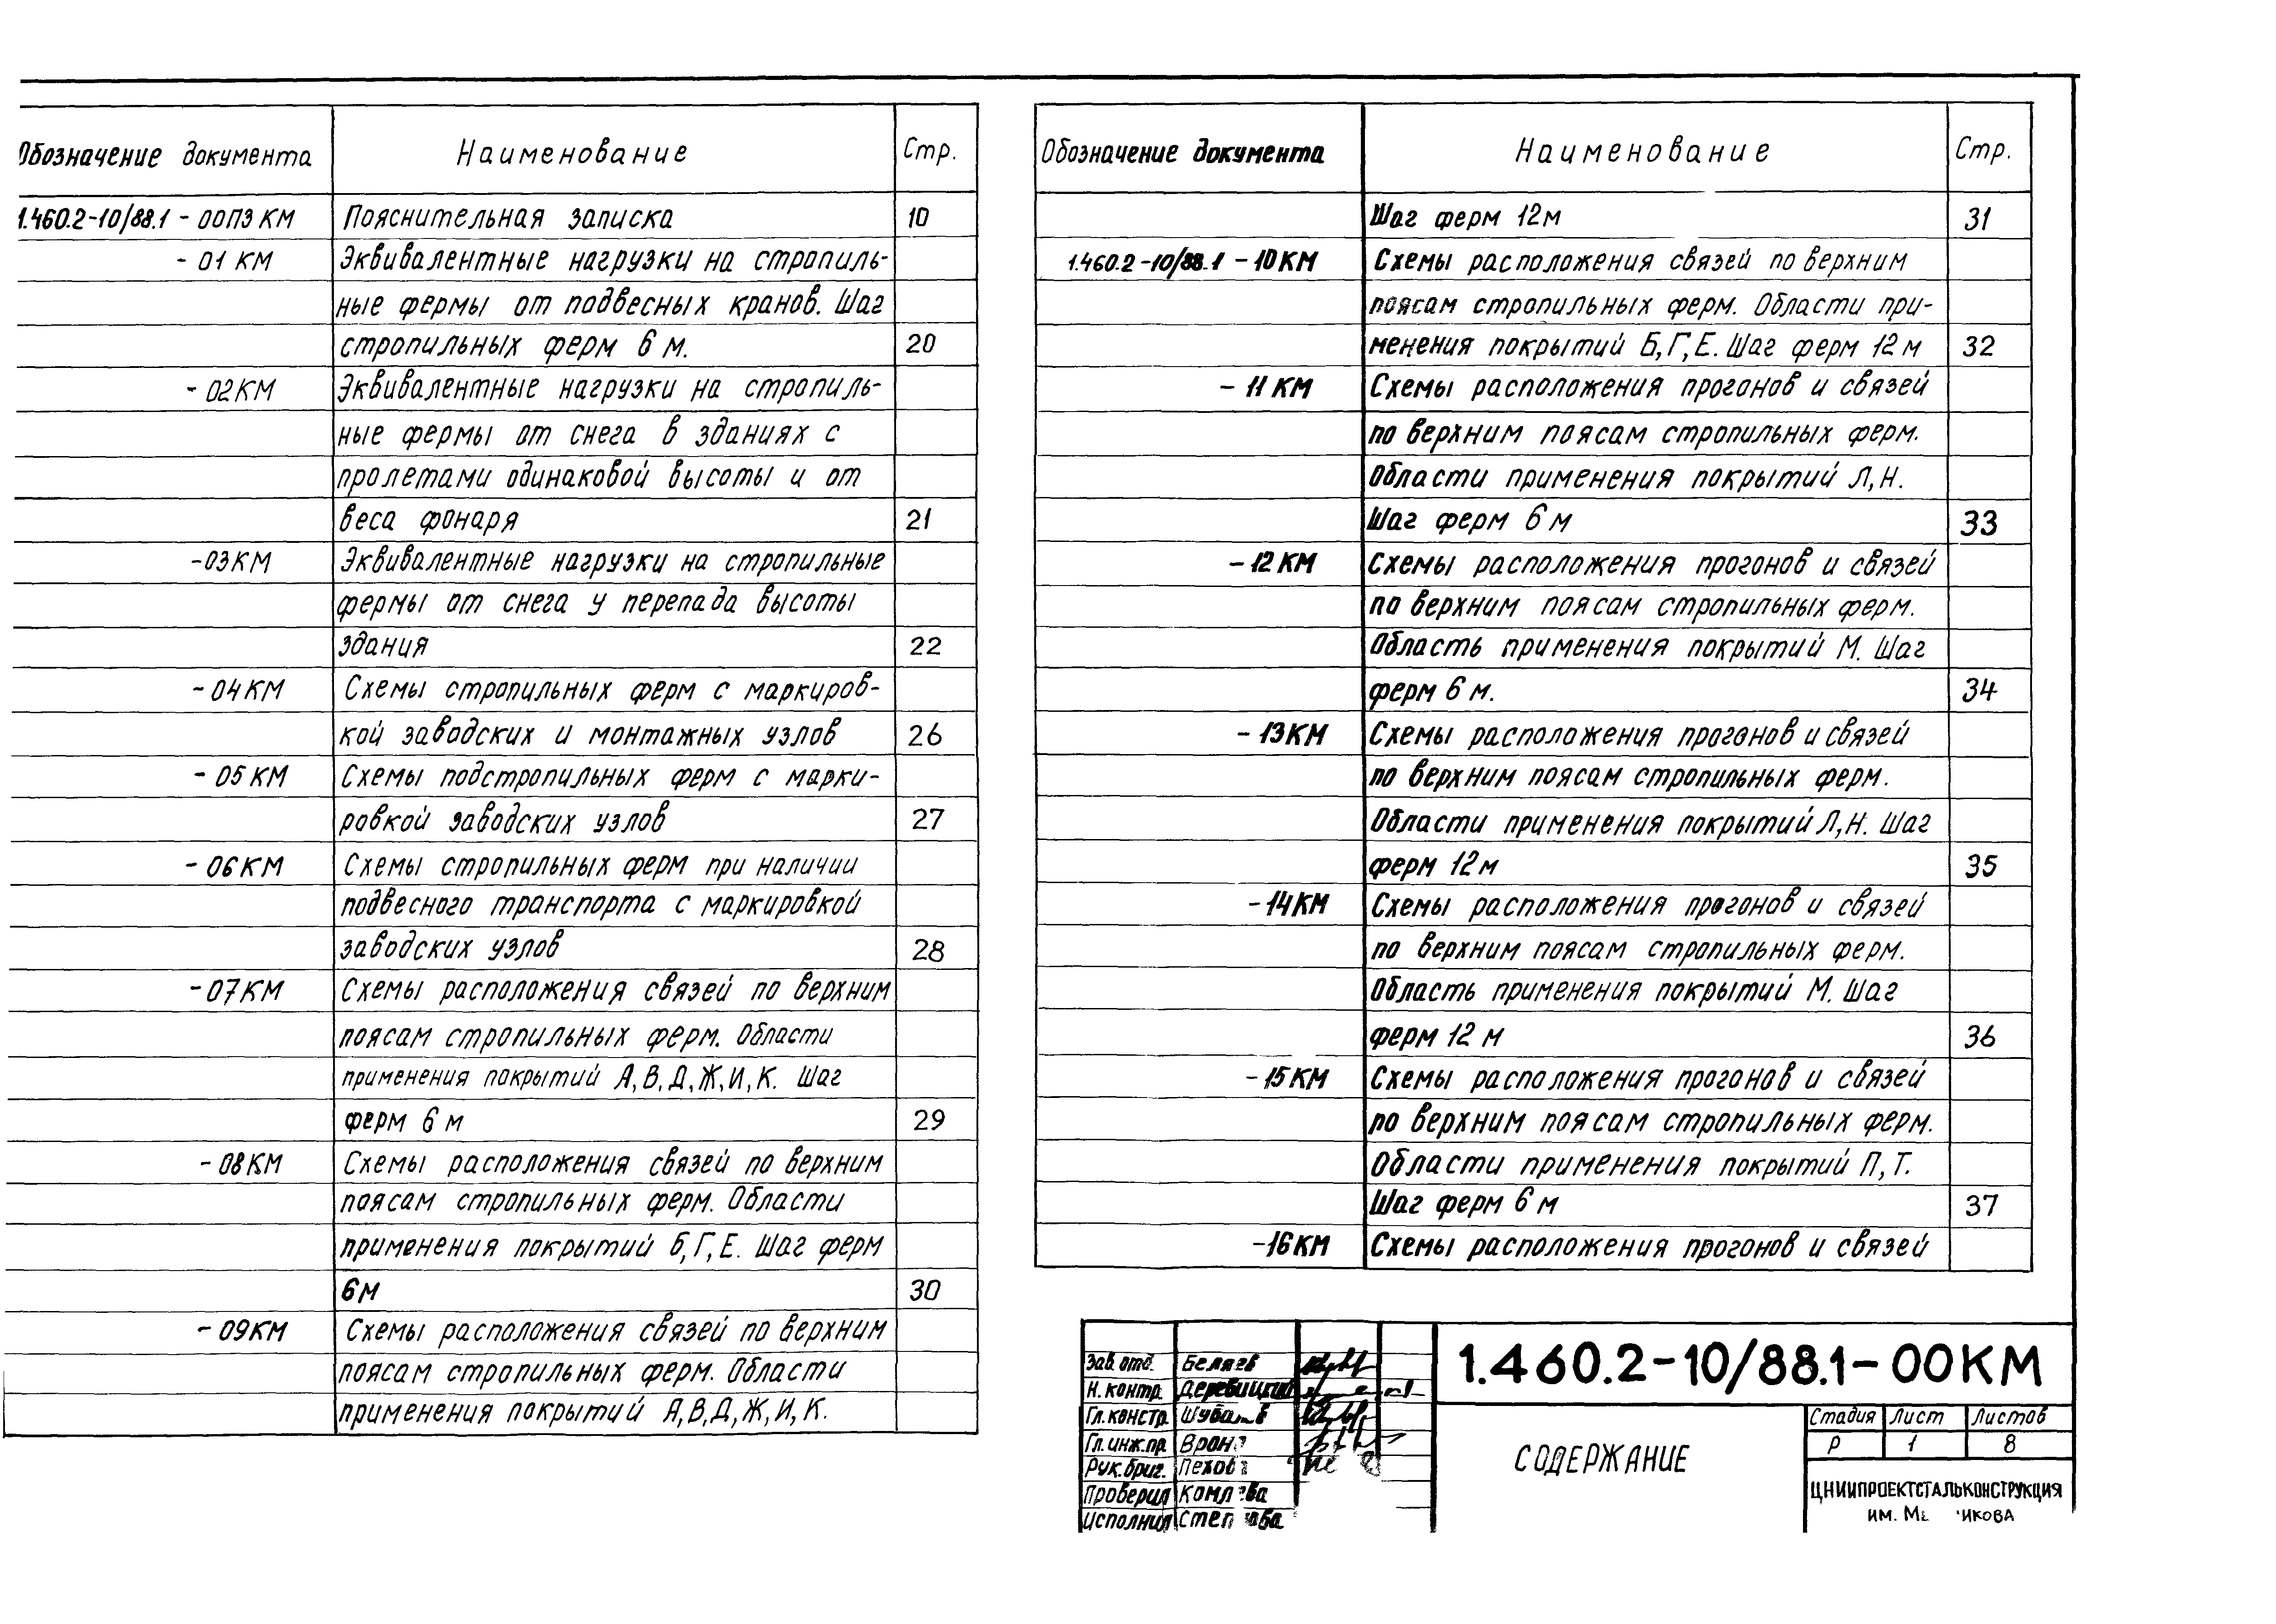 Обозначение документа Наименование Стр.
1.460.2-10/88.1 - 00ПЗ КМ Пояснительная записка 10
- 01 КМ Эквивалентные нагрузки на стропиль-
ные фермы от подвесных кранов. Шаг
стропильных ферм 6 м. 20
- 02 КМ Эквивалентные нагрузки на стропиль-
ные фермы от снега в зданиях с
пролетами одинаковой высоты и от
веса фонаря 21
- 03 КМ Эквивалентные нагрузки на стропильные
фермы от снега у перепада высоты
здания 22
- 04 КМ Схемы стропильных ферм с маркиров-
кой заводских и монтажных узлов 26
- 05 КМ Схемы подстропильных ферм с марки-
ровкой заводских узлов 27
- 06 КМ Схемы стропильных ферм при наличии
подвесного транспорта с маркировкой
заводских узлов 28
- 07 КМ Схемы расположения связей по верхним
поясам стропильных ферм. Области
применения покрытий А, В, Д, Ж, И, К. Шаг
ферм 6 м 29
- 08 КМ Схемы расположения связей по верхним
поясам стропильных ферм. Области
применения покрытий Б, Г, Е. Шаг ферм
6 м 30
- 09 КМ Схемы расположения связей по верхним
поясам стропильных ферм. Области
применения покрытий А, В, Д, Ж, И, К.
Обозначение документа Наименование Стр.
Шаг ферм 12 м 31
1.460.2-10/88.1 - 10 КМ Схемы расположения связей по верхним
поясам стропильных ферм. Области при-
менения покрытий Б, Г, Е. Шаг ферм 12 м 32
- 11 КМ Схемы расположения прогонов и связей
по верхним поясам стропильных ферм.
Области применения покрытий Л, Н.
Шаг ферм 6 м 33
- 12 КМ Схемы расположения прогонов и связей
по верхним поясам стропильных ферм.
Область применения покрытий М. Шаг
ферм 6 м. 34
- 13 КМ Схемы расположения прогонов и связей
по верхним поясам стропильных ферм.
Области применения покрытий Л, Н. Шаг
ферм 12 м 35
- 14 КМ Схемы расположения прогонов и связей
по верхним поясам стропильных ферм.
Область применения покрытий М. Шаг
ферм 12 м 36
- 15 КМ Схемы расположения прогонов и связей
по верхним поясам стропильных ферм.
Области применения покрытий П, Т.
Шаг ферм 6 м 37
- 16 КМ Схемы расположения прогонов и связей
Зав. отд. Беляев
Н. контр. Деревицкий
Гл. констр.
Гл. инж. пр.
Рук. бриг.
Проверил
Исполнил
1.460.2-10/88.1-00КМ
СОДЕРЖАНИЕ
Стадия Лист Листов
Р 1 8
ЦНИИПРОЕКТСТАЛЬКОНСТРУКЦИЯ
ИМ.